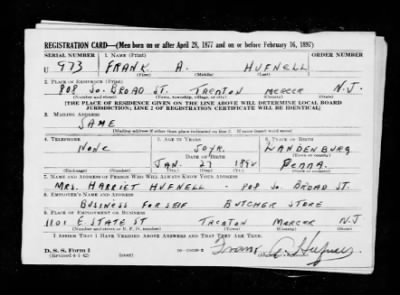 REGISTRATION CARD—(Men born on or after April 28, 1877 and on or before February 16, 1897)
SERIAL NUMBER 1. NAME (Print) ORDER NUMBER
U 973 FRANK A. HUFNELL
(First) (Middle) (Last)
2. PLACE OF RESIDENCE (Print)
908 SO. BROAD ST. TRENTON MERCER N.J.
(Number and street) (Town, township, village, or city) (County) (State)
[THE PLACE OF RESIDENCE GIVEN ON THE LINE ABOVE WILL DETERMINE LOCAL BOARD
JURISDICTION; LINE 2 OF REGISTRATION CERTIFICATE WILL BE IDENTICAL]
3. MAILING ADDRESS
SAME
[Mailing address if other than place indicated on line 2. If same insert word same]
4. TELEPHONE 5. AGE IN YEARS 6. PLACE OF BIRTH
NONE 50YR. LANDENBURG
DATE OF BIRTH
JAN. 23 PENNA.
7. NAME AND ADDRESS OF PERSON WHO WILL ALWAYS KNOW YOUR ADDRESS
MRS. HARRIET HUFNELL - 908 SO. BROAD ST.
8. EMPLOYER'S NAME AND ADDRESS
BUSINESS FOR SELF BUTCHER STORE
9. PLACE OF EMPLOYMENT OR BUSINESS
1101 E STATE ST TRENTON MERCER N.J
(Number and street or R. F. D. number) (Town) (County) (State)
I AFFIRM THAT I HAVE VERIFIED ABOVE ANSWERS AND THAT THEY ARE TRUE.
D. S. S. Form 1
(Revised 4-1-42) Frank A. Hufnell